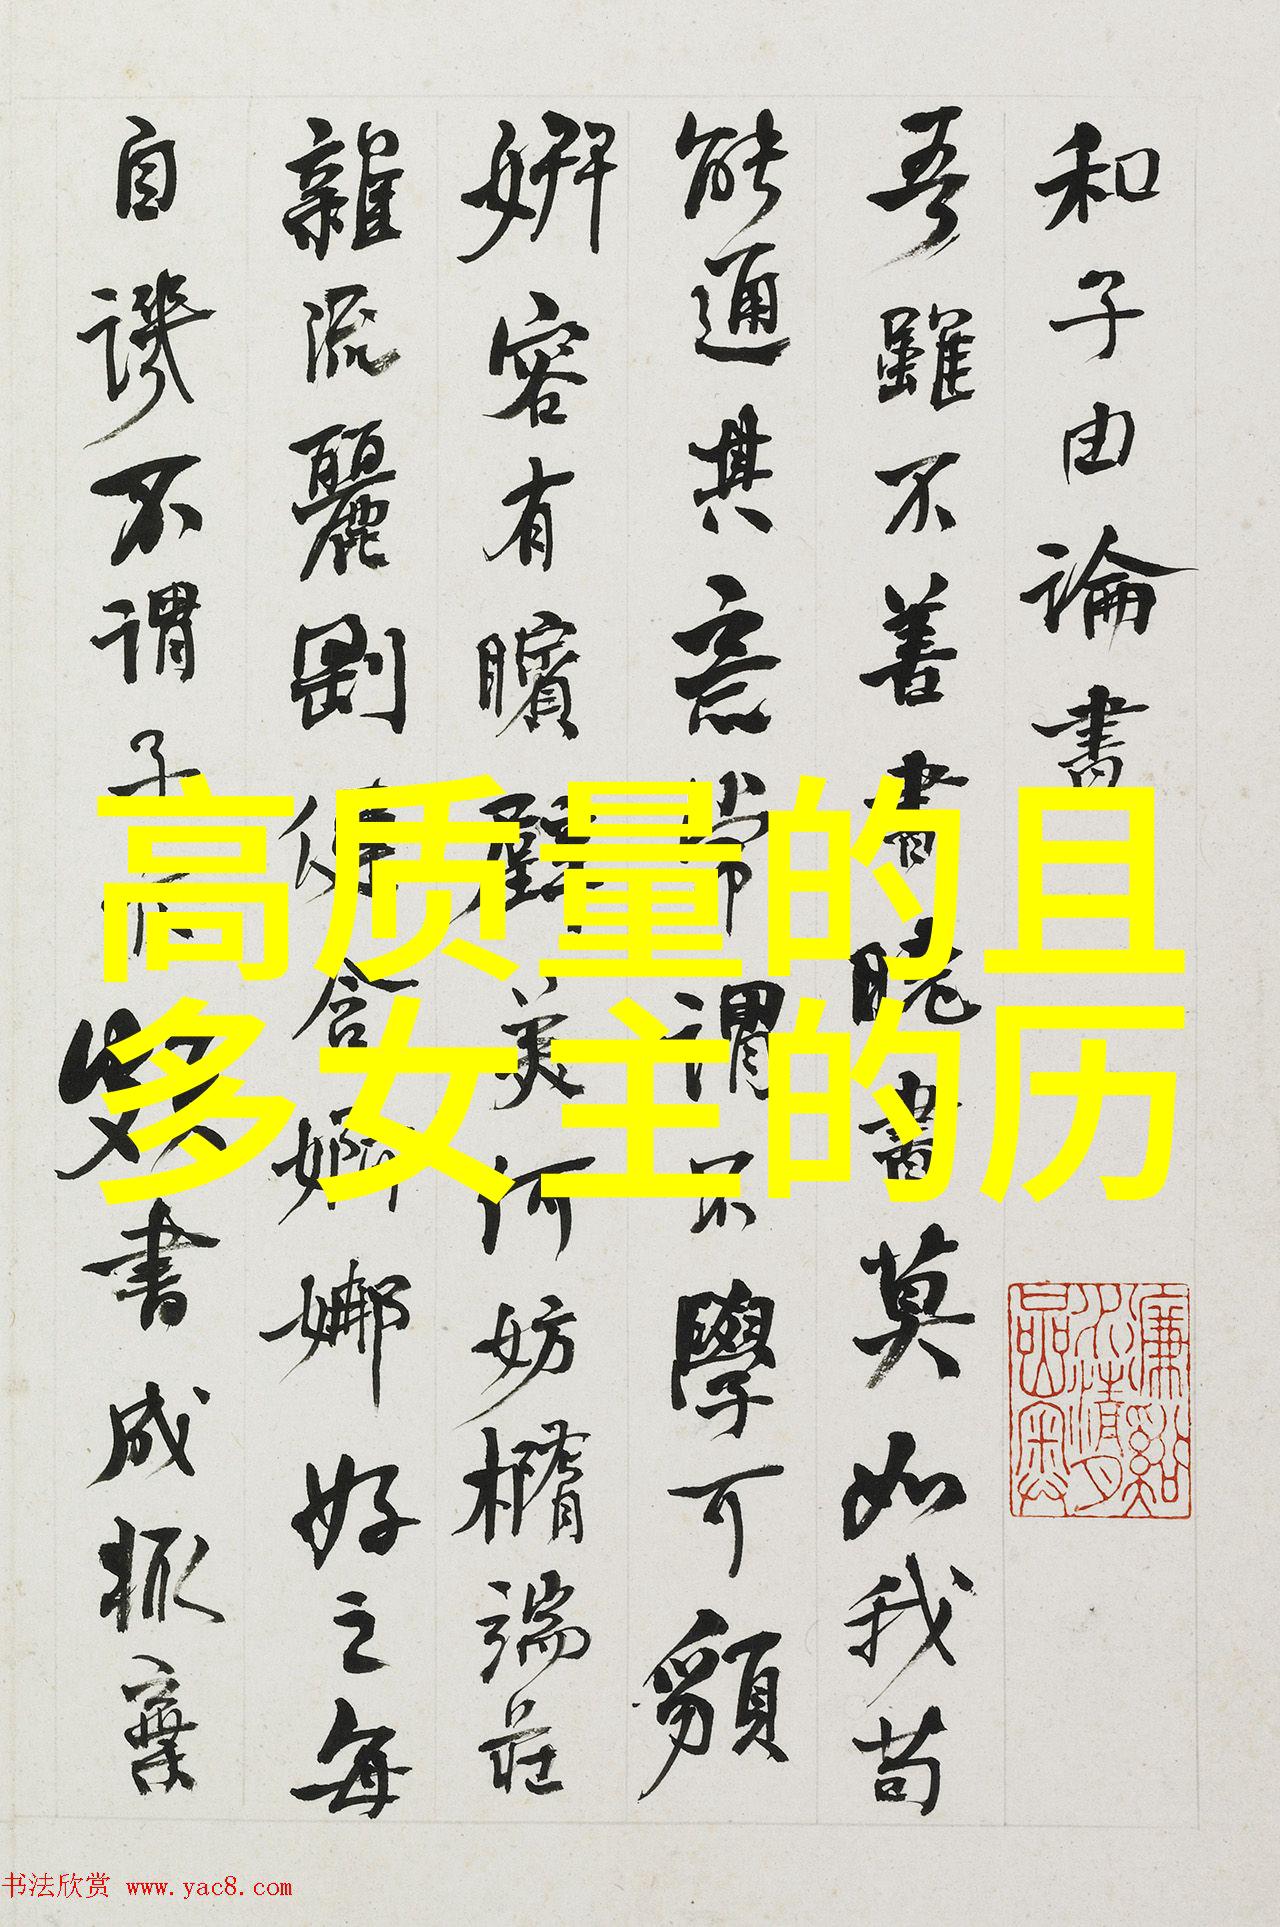 和子由論書
吾雖不善書曉書莫如我苟
能通其意常謂不學可䫉
妍容有矉璧美何妨橢端莊
雜流麗剛健含婀娜好之每
自譏不謂子亦頗書成輒棄
高质量的且
多女主的历
书法欣赏 www.yac8.com